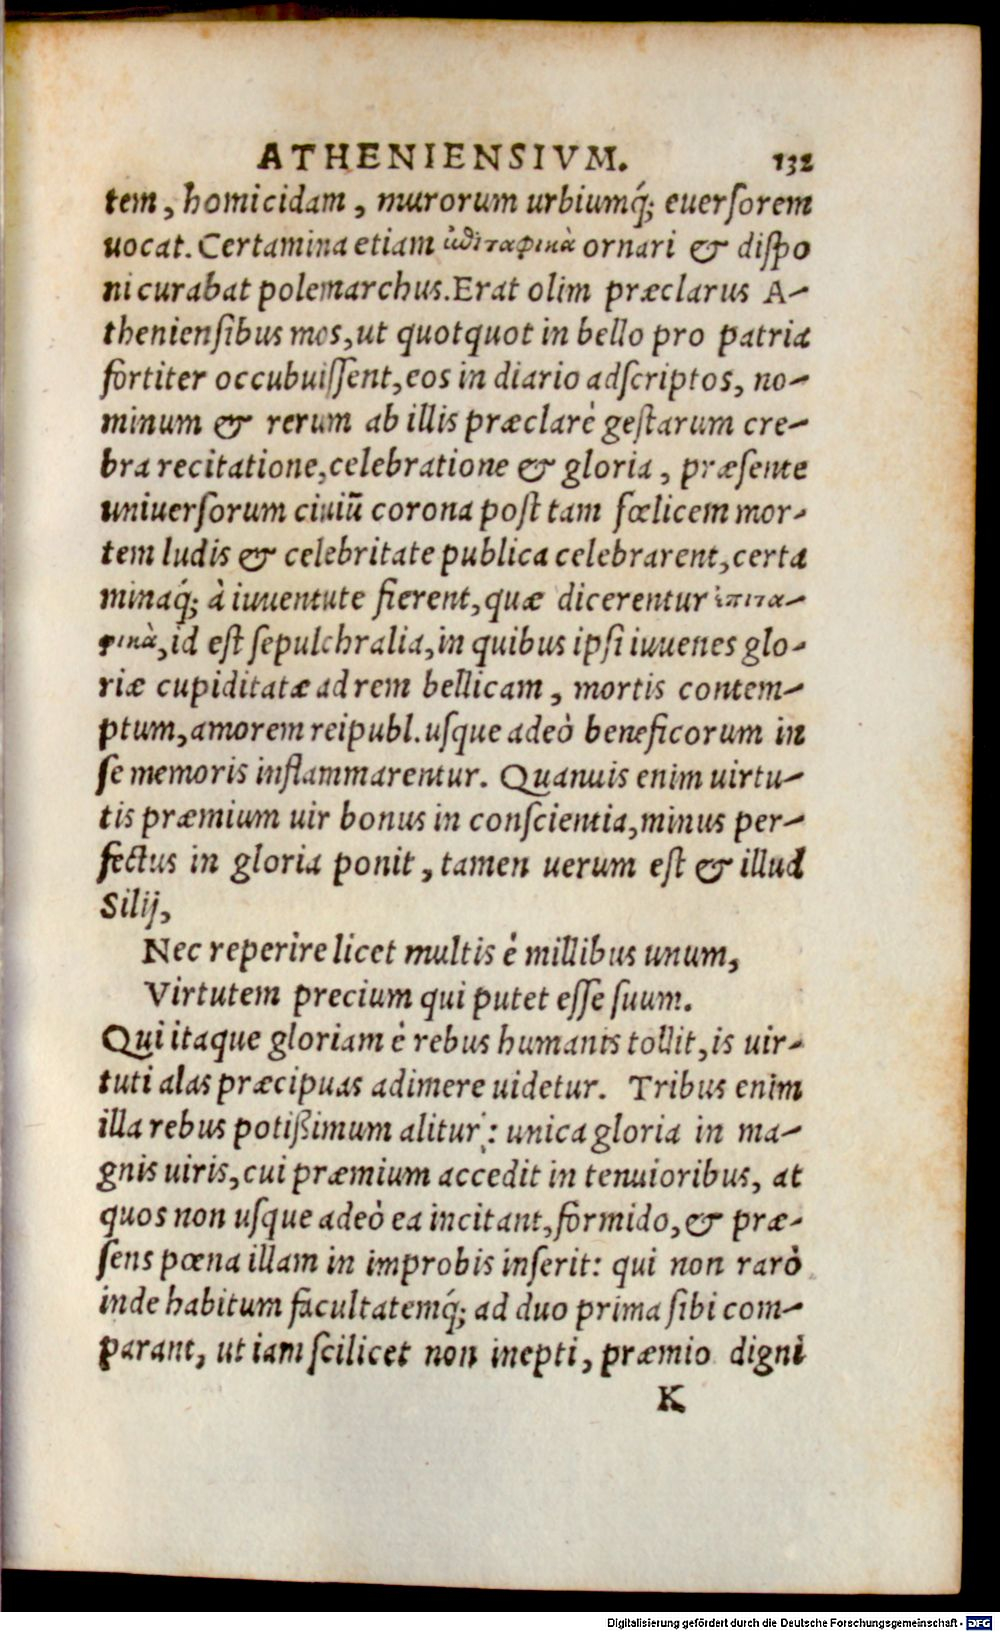 ATHENIENSIVM. 132
tem, homicidam, murorum urbiumq́; euerſorem
uocat. Certamina etiam ornari & diſpo
ni curabat polemarchus. Erat olim præclarus A-
thenienſibus mos, ut quotquot in bello pro patria
fortiter occubuiſſent, eos in diario adſcriptos, no-
minum & rerum ab illis præclarè geſtarum cre-
bra recitatione, celebratione & gloria, præſente
uniuerſorum ciuiũ corona poſt tam fœlicem mor-
tem ludis & celebritate publica celebrarent, certa
minaq́; à iuuentute fierent, quæ dicerentur ἐπιτα-
φικὰ, id eſt ſepulchralia, in quibus ipſi iuuenes glo-
riæ cupiditatæ ad rem bellicam, mortis contem-
ptum, amorem reipubl. uſque adeò beneficorum in
ſe memoris inflammarentur. Quanuis enim uirtu-
tis præmium uir bonus in conſcientia, minus per-
fectus in gloria ponit, tamen uerum eſt & illud
Silij,
Nec reperire licet multis è millibus unum,
Virtutem precium qui putet eſſe ſuum.
Qui itaque gloriam è rebus humanis tollit, is uir-
tuti alas præcipuas adimere uidetur. Tribus enim
illa rebus potißimum alitur: unica gloria in ma-
gnis uiris, cui præmium accedit in tenuioribus, at
quos non uſque adeò ea incitant, formido, & præ-
ſens pœna illam in improbis inſerit: qui non rarò
inde habitum facultatemq́; ad duo prima ſibi com-
parant, ut iam ſcilicet non inepti, præmio digni
K
Digitalisierung gefördert durch die Deutsche Forschungsgemeinschaft - DFG